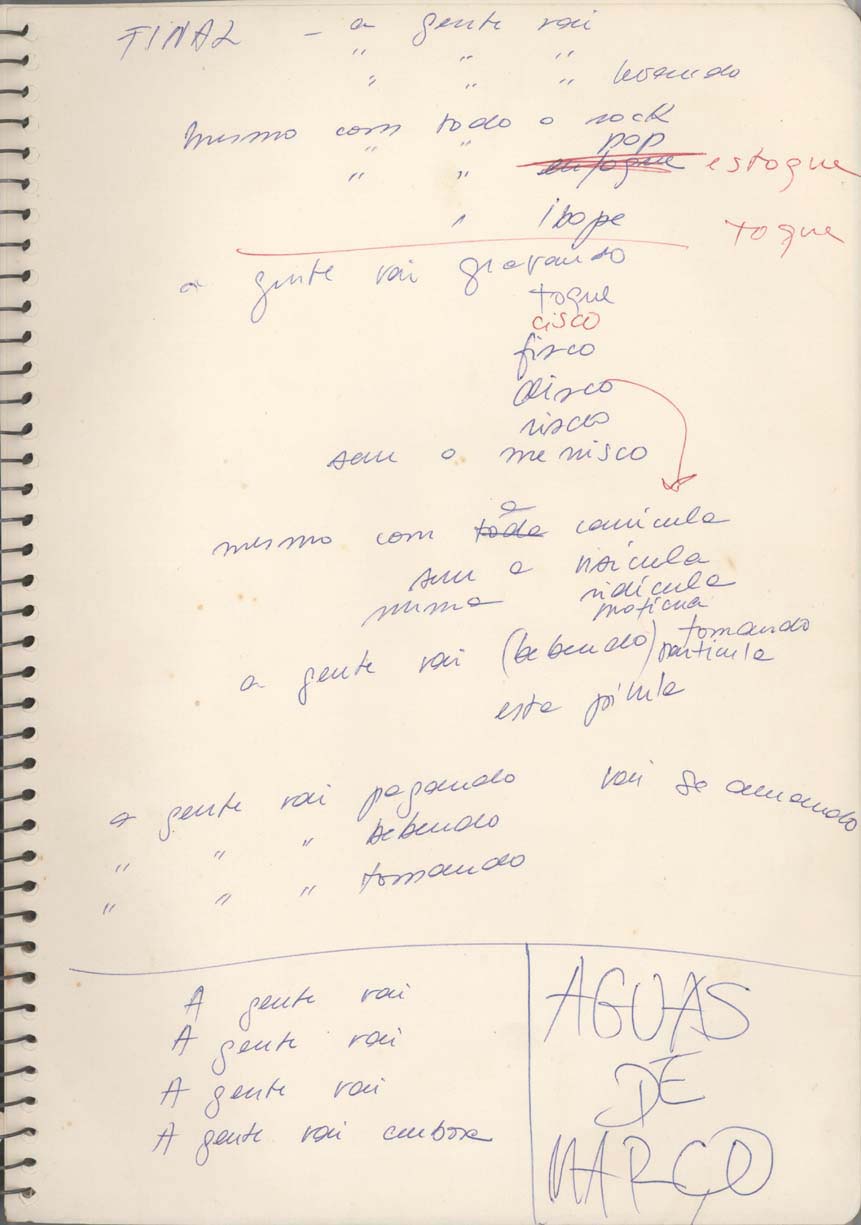 FINAL – a gente vai
" " "
" " " levando
mesmo com todo o rock
" " pop
" " estoque
" ibope toque
a gente vai gravando
toque
cisco
fisco
disco
risco
sem o menisco
a
mesmo com toda canícula
sem a
numa ridícula
a gente vai (bebendo) tomando
partícula
esta pílula
a gente vai pagando vai se amando
" " " bebendo
" " " tomando
A gente vai
A gente vai
A gente vai
A gente vai embora
AGUAS
DE
MARÇO